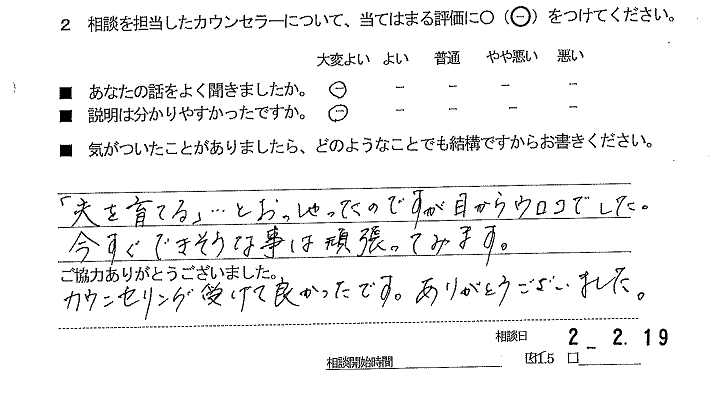 2 相談を担当したカウンセラーについて、当てはまる評価に○（⊖）をつけてください。
大変よい よい 普通 やや悪い 悪い
■ あなたの話をよく聞きましたか。 ⊖ － － － －
■ 説明は分かりやすかったですか。 ⊖ － － － －
■ 気がついたことがありましたら、どのようなことでも結構ですからお書きください。
「夫を育てる」…とおっしゃったのですが目からウロコでした。
今すぐできそうな事は頑張ってみます。
ご協力ありがとうございました。
カウンセリング受けて良かったです。ありがとうございました。
相談日 2_ 2. 19
相談開始時間